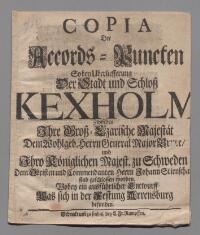 COPIA
Der
Accords-Puncten
Bey Uberlieferung
Der Stadt und Schloß
KEXHOLM
Zwischen
Ihro Groß-Czarische Majestät
Dem Wohlgeb. Herrn General Major
und
Ihro Königlichen Majest. zu Schweden
Dem Obristen und Commendanten Herrn Johann
sind geschlossen worden.
Wobey ein ausführlicher Entwurff
Was sich in der Festung Arensburg
befunden.